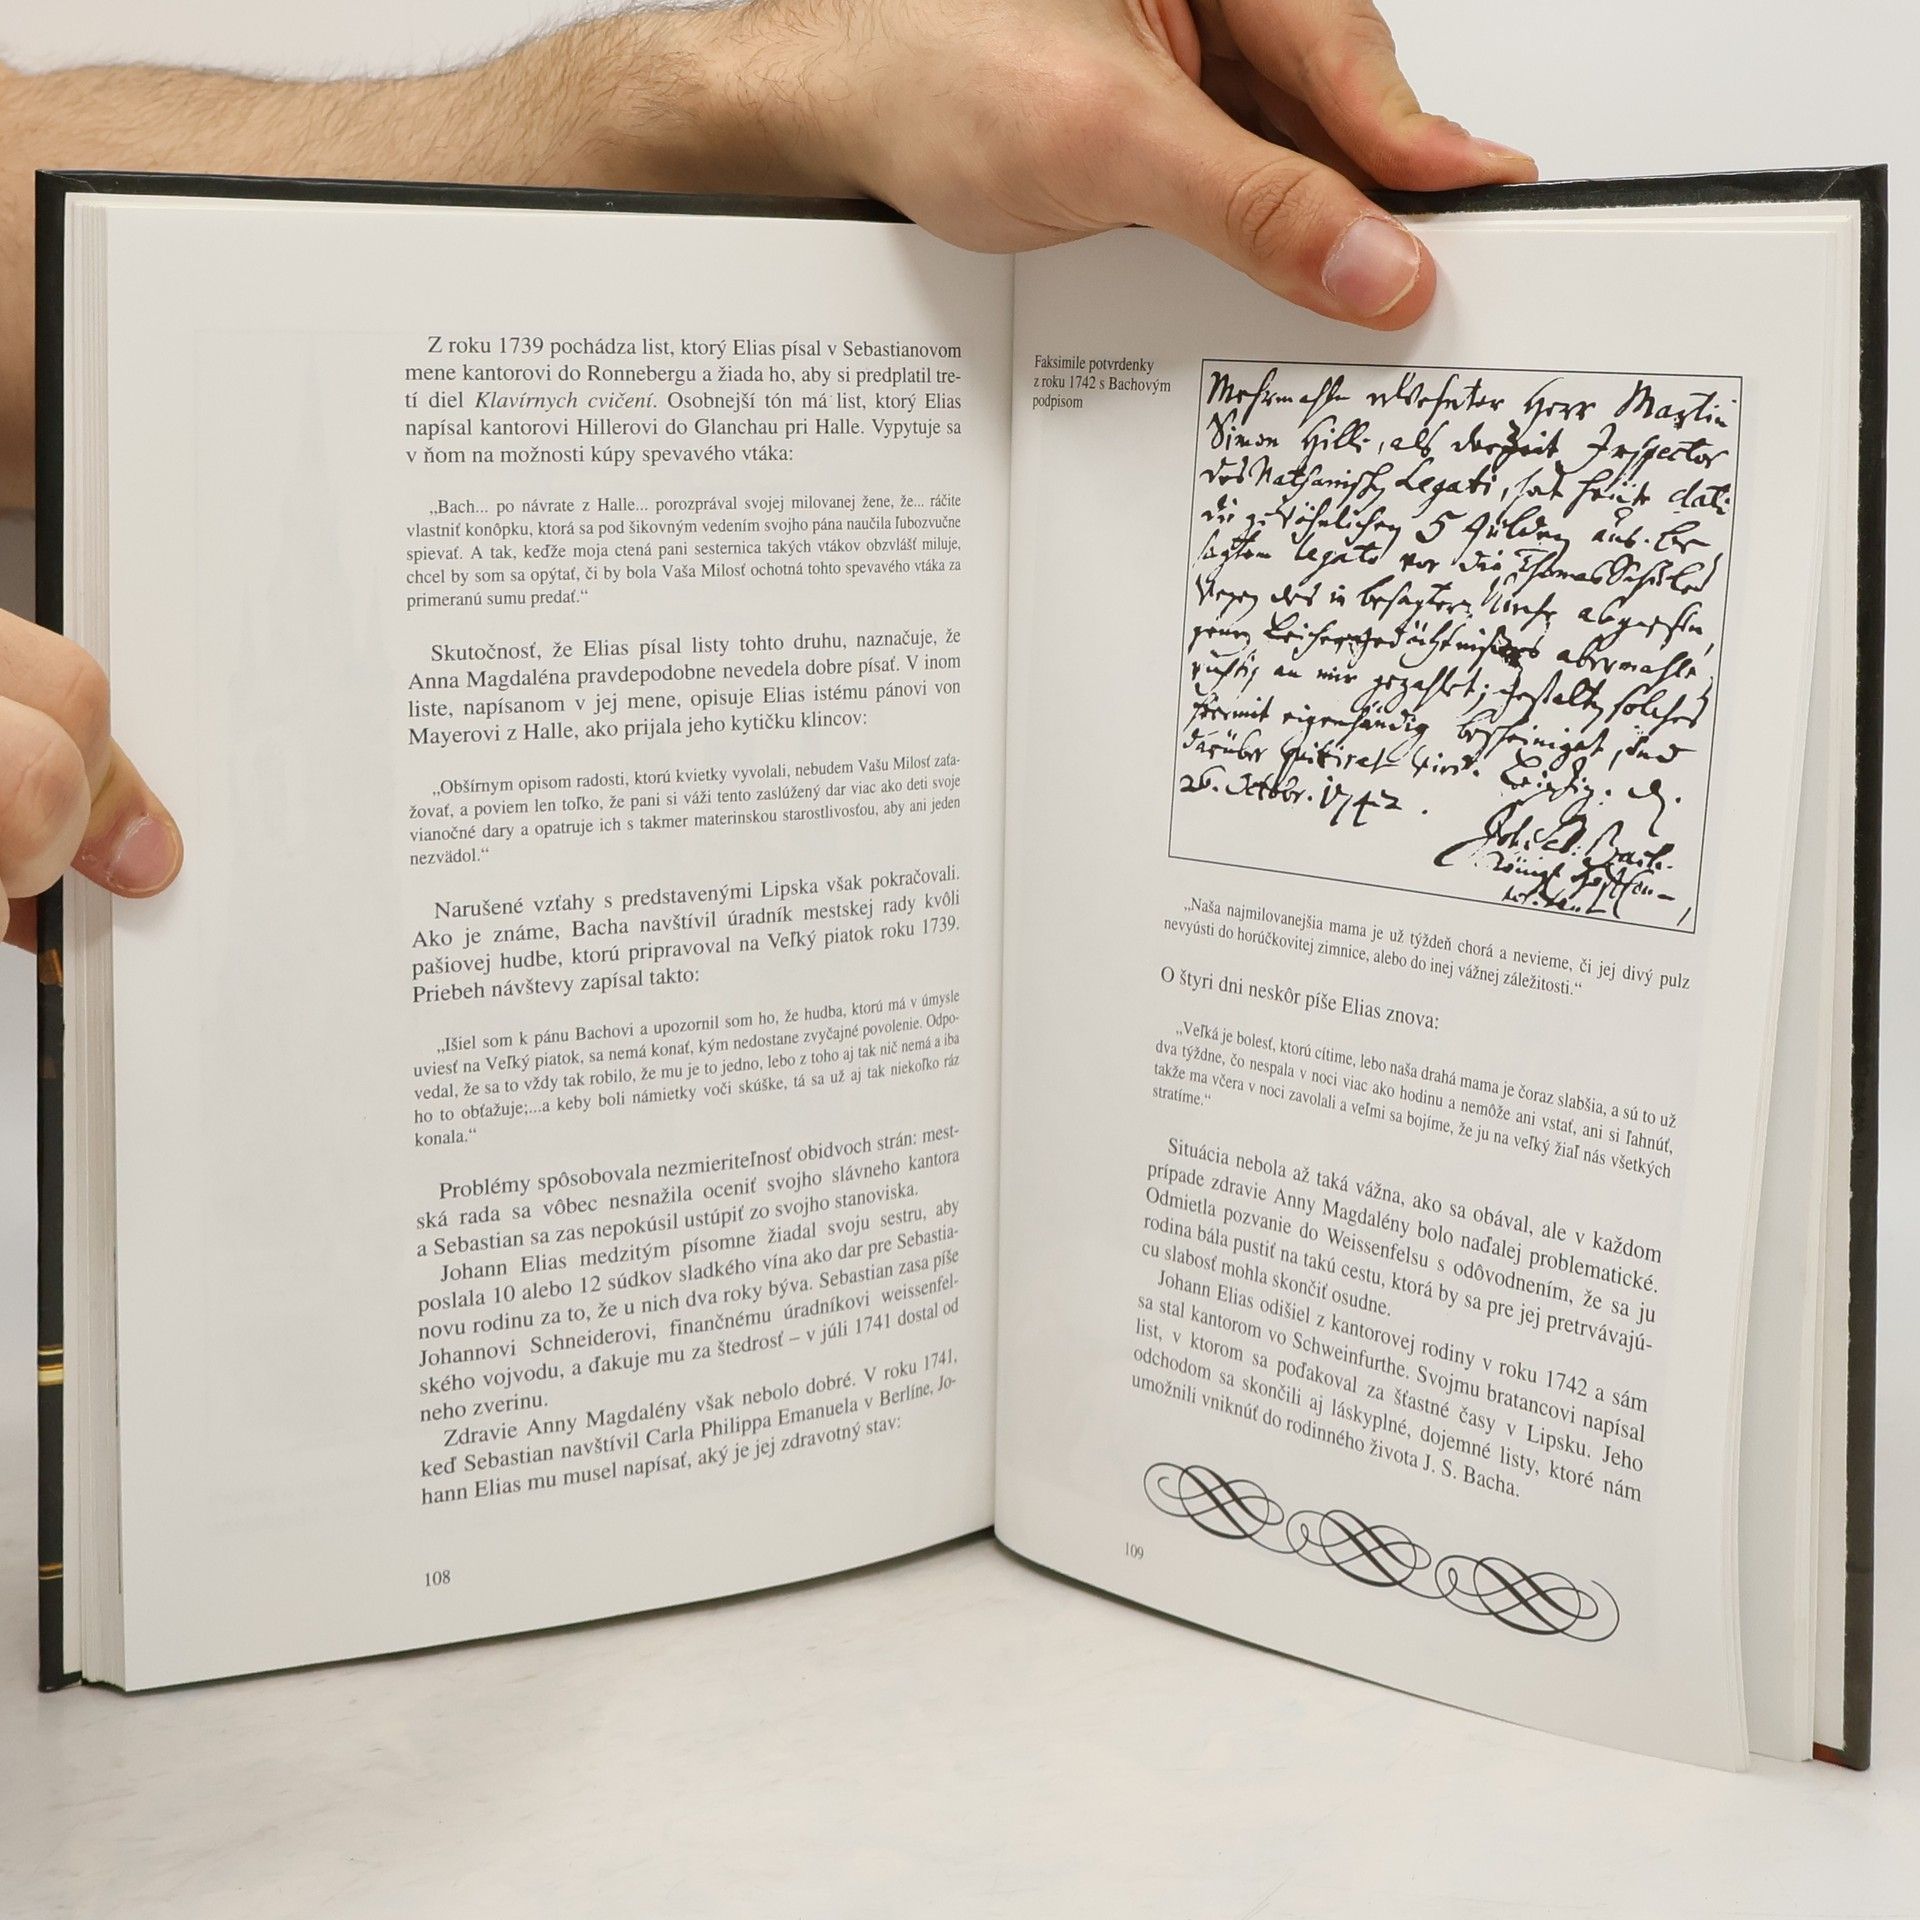 Z roku 1739 pochádza list, ktorý Elias písal v Sebastianovom
mene kantorovi do Ronnebergu a žiada ho, aby si predplatil tre-
tí diel Klavírnych cvičení. Osobnejší tón má list, ktorý Elias
napísal kantorovi Hillerovi do Glanchau pri Halle. Vypytuje sa
v ňom na možnosti kúpy spevavého vtáka:
„Bach... po návrate z Halle... porozprával svojej milovanej žene, že... ráčite
vlastniť konôpku, ktorá sa pod šikovným vedením svojho pána naučila ľubozvučne
spievať. A tak, keďže moja ctená pani sesternica takých vtákov obzvlášť miluje,
chcel by som sa opýtať, či by bola Vaša Milosť ochotná tohto spevavého vtáka za
primeranú sumu predať.“
Skutočnosť, že Elias písal listy tohto druhu, naznačuje, že
Anna Magdaléna pravdepodobne nevedela dobre písať. V inom
liste, napísanom v jej mene, opisuje Elias istému pánovi von
Mayerovi z Halle, ako prijala jeho kytičku klincov:
„Obšírnym opisom radosti, ktorú kvietky vyvolali, nebudem Vašu Milosť zaťa-
žovať, a poviem len toľko, že pani si váži tento zaslúžený dar viac ako deti svoje
vianočné dary a opatruje ich s takmer materinskou starostlivosťou, aby ani jeden
nezvädol.“
Narušené vzťahy s predstavenými Lipska však pokračovali.
Ako je známe, Bacha navštívil úradník mestskej rady kvôli
pašiovej hudbe, ktorú pripravoval na Veľký piatok roku 1739.
Priebeh návštevy zapísal takto:
„Išiel som k pánu Bachovi a upozornil som ho, že hudba, ktorú má v úmysle
uviesť na Veľký piatok, sa nemá konať, kým nedostane zvyčajné povolenie. Odpo-
vedal, že sa to vždy tak robilo, že mu je to jedno, lebo z toho aj tak nič nemá a iba
ho to obťažuje;...a keby boli námietky voči skúške, tá sa už aj tak niekoľko ráz
konala.“
Problémy spôsobovala nezmieriteľnosť obidvoch strán: mest-
ská rada sa vôbec nesnažila oceniť svojho slávneho kantora
a Sebastian sa zas nepokúsil ustúpiť zo svojho stanoviska.
Johann Elias medzitým písomne žiadal svoju sestru, aby
poslala 10 alebo 12 súdkov sladkého vína ako dar pre Sebastia-
novu rodinu za to, že u nich dva roky býva. Sebastian zasa píše
Johannovi Schneiderovi, finančnému úradníkovi weissenfel-
ského vojvodu, a ďakuje mu za štedrosť – v júli 1741 dostal od
neho zverinu.
Zdravie Anny Magdalény však nebolo dobré. V roku 1741,
keď Sebastian navštívil Carla Philippa Emanuela v Berlíne, Jo-
hann Elias mu musel napísať, aký je jej zdravotný stav:
108
Faksimile potvrdenky
z roku 1742 s Bachovým
podpisom
Herr Martin
Simon Hille, als derzeit Inspector
des Legati, hat heüte dato
die 5 Gülden aus be
Legato vor die ThomasSchule
abermahls
an mir gezahlet;
hiermit eigenhändig bescheiniget, und
darüber quitiret wird. Leipzig. d.
26. Octobr. 1742.
Joh. Seb. Bach.
„Naša najmilovanejšia mama je už týždeň chorá a nevieme, či jej divý pulz
nevyústi do horúčkovitej zimnice, alebo do inej vážnej záležitosti.“
O štyri dni neskôr píše Elias znova:
„Veľká je bolesť, ktorú cítime, lebo naša drahá mama je čoraz slabšia, a sú to už
dva týždne, čo nespala v noci viac ako hodinu a nemôže ani vstať, ani si ľahnúť,
takže ma včera v noci zavolali a veľmi sa bojíme, že ju na veľký žiaľ nás všetkých
stratíme.“
Situácia nebola až taká vážna, ako sa obával, ale v každom
prípade zdravie Anny Magdalény bolo naďalej problematické.
Odmietla pozvanie do Weissenfelsu s odôvodnením, že sa ju
rodina bála pustiť na takú cestu, ktorá by sa pre jej pretrvávajú-
cu slabosť mohla skončiť osudne.
Johann Elias odišiel z kantorovej rodiny v roku 1742 a sám
sa stal kantorom vo Schweinfurthe. Svojmu bratancovi napísal
list, v ktorom sa poďakoval za šťastné časy v Lipsku. Jeho
odchodom sa skončili aj láskyplné, dojemné listy, ktoré nám
umožnili vniknúť do rodinného života J. S. Bacha.
109